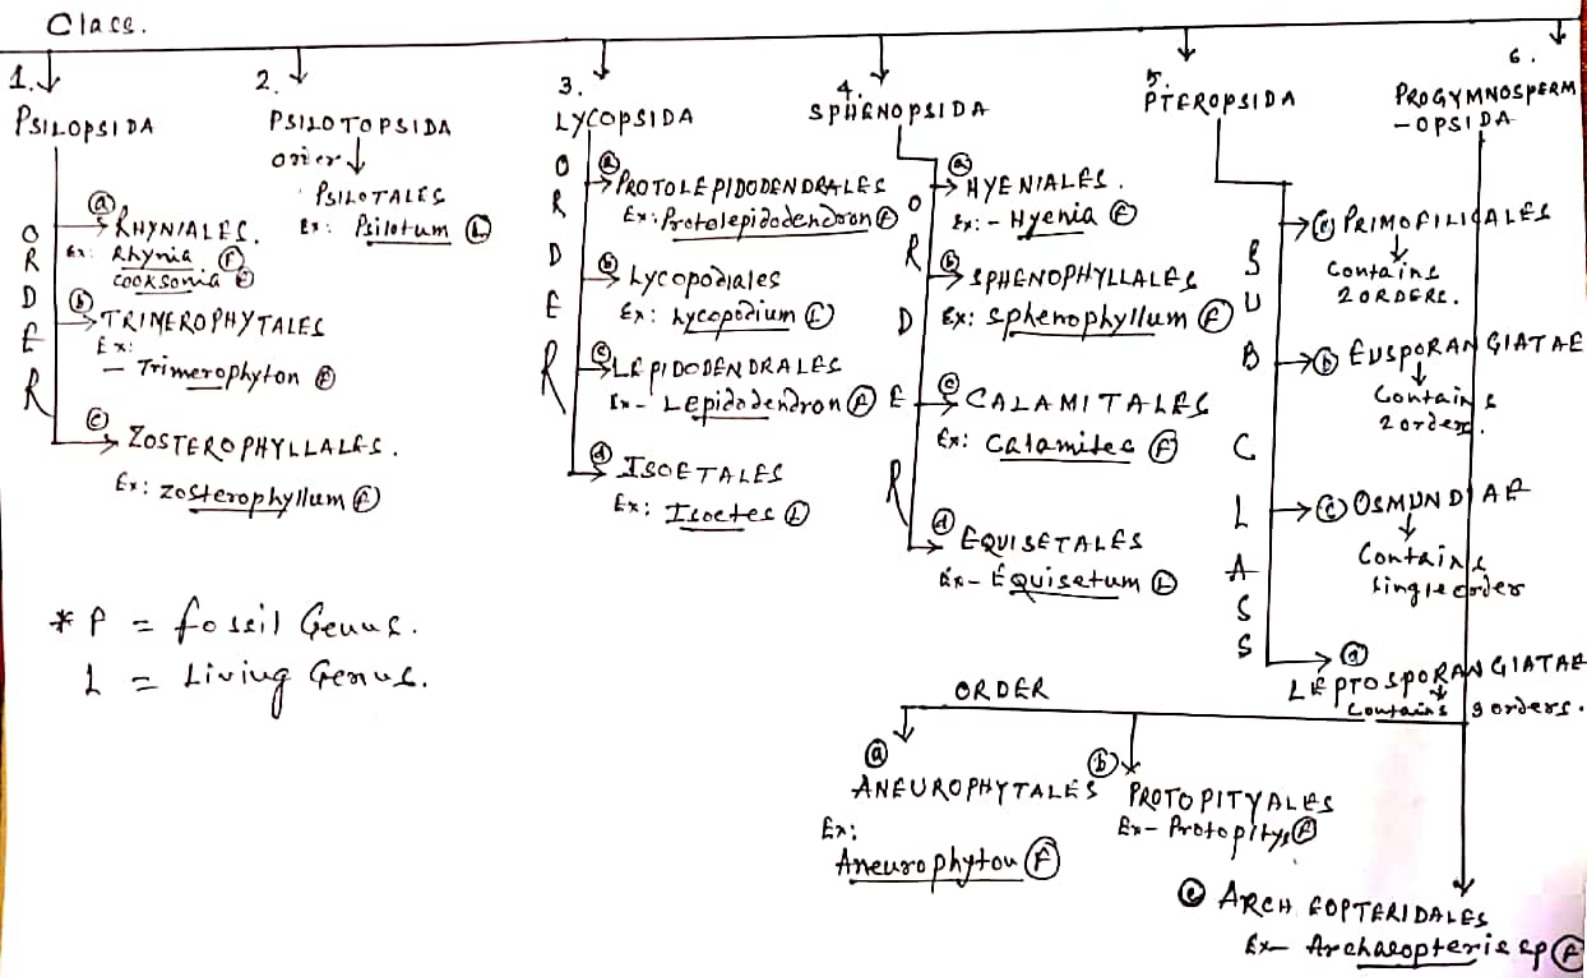 Class.
1.
PSILOPSIDA
ORDER
ⓐ RHYNIALES.
Ex: Rhynia Ⓕ
Cooksonia Ⓕ
ⓑ TRIMEROPHYTALES
Ex:
- Trimerophyton Ⓕ
ⓒ ZOSTEROPHYLLALES.
Ex: Zosterophyllum Ⓕ
2.
PSILOTOPSIDA
order
PSILOTALES
Ex: Psilotum Ⓛ
3.
LYCOPSIDA
ORDER
ⓐ PROTOLEPIDODENDRALES
Ex: Protolepidodendron Ⓕ
ⓑ Lycopodiales
Ex: Lycopodium Ⓛ
ⓒ LEPIDODENDRALES
Ex- Lepidodendron Ⓕ
ⓓ ISOETALES
Ex: Isoetes Ⓛ
4.
SPHENOPSIDA
ORDER
ⓐ HYENIALES.
Ex:- Hyenia Ⓕ
ⓑ SPHENOPHYLLALES
Ex: Sphenophyllum Ⓕ
ⓒ CALAMITALES
Ex: Calamites Ⓕ
ⓓ EQUISETALES
Ex- Equisetum Ⓛ
5.
PTEROPSIDA
SUB CLASS
ⓐ PRIMOFILICALES
Contains
2 ORDERS.
ⓑ EUSPORANGIATAE
Contains
2 orders.
ⓒ OSMUNDIAE
Contains
Single order
ⓓ
LEPTOSPORANGIATAE
Contains 9 orders.
6.
PROGYMNOSPERM
-OPSIDA
ORDER
ⓐ
ANEUROPHYTALES
Ex:
Aneurophyton Ⓕ
ⓑ
PROTOPITYALES
Ex- Protopitys Ⓕ
ⓒ ARCHEOPTERIDALES
Ex- Archaeopteris sp Ⓕ
* F = fossil Genus.
L = Living Genus.